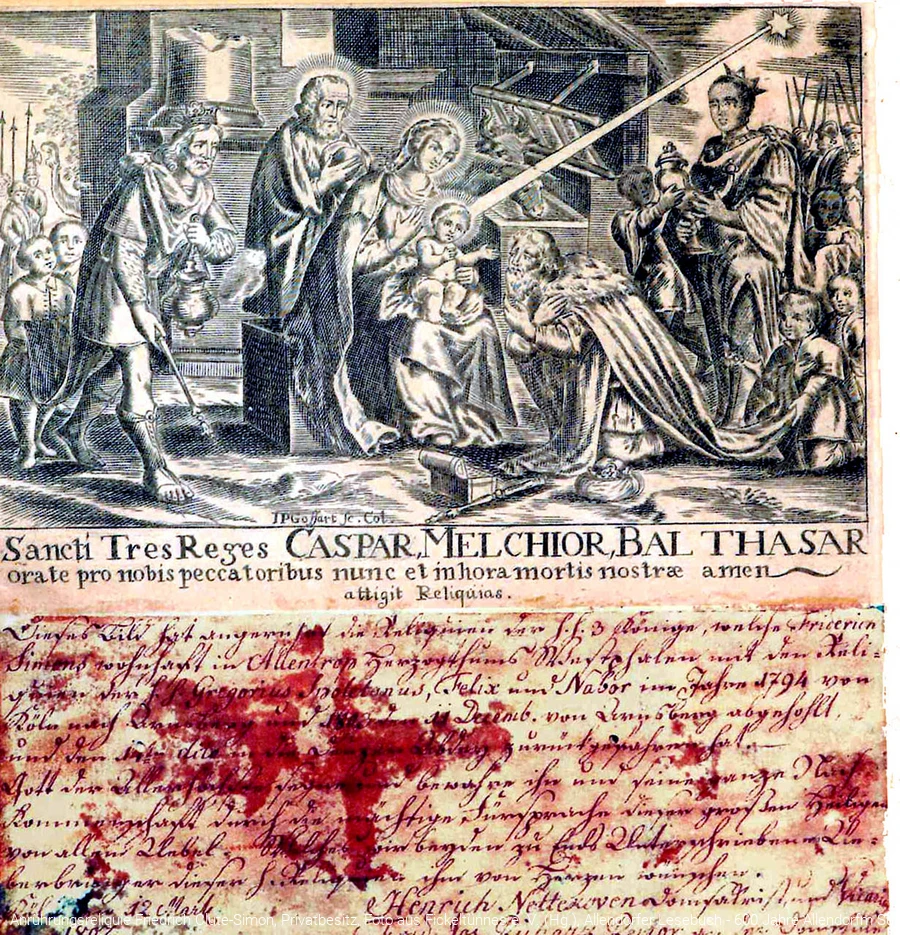 IPGoffart sc. Col.
Sancti Tres Reges CASPAR, MELCHIOR, BAL THASAR
orate pro nobis peccatoribus nunc et in hora mortis nostræ amen
attigit Reliquias.
Dieses Bild hat angerührt die Reliquien der h.h. 3 Könige, welche Friderich
Simens wohnhaft in Allentrop Herzogthums Westphalen mit den Reli-
quien der h.h. Gregorius Spoletanus, Felix und Nabor im Jahre 1794 von
Köln nach Arnsberg und den 11 Decemb. von Arnsberg abgehohlt,
und den dito in zurückgefahren hat.
Gott der segne und bewahre ihn und seine ganze Nach-
kommenschaft durch die mächtige Fürsprache dieser großen Heiligen
von allem Uebel. Welches wir beyden zu Ends Unterschriebene Ue-
berbringer dieser h. Reliquien ihm von Herzen wünschen.
Henrich Nettekoven Domsakrist und Vicar
Anrührungsreliquie Friedrich Clute-Simon, Privatbesitz, Foto aus Fickeltünnes e. V. (Hg.) Allendorfer Lesebuch - 600 Jahre Allendorf